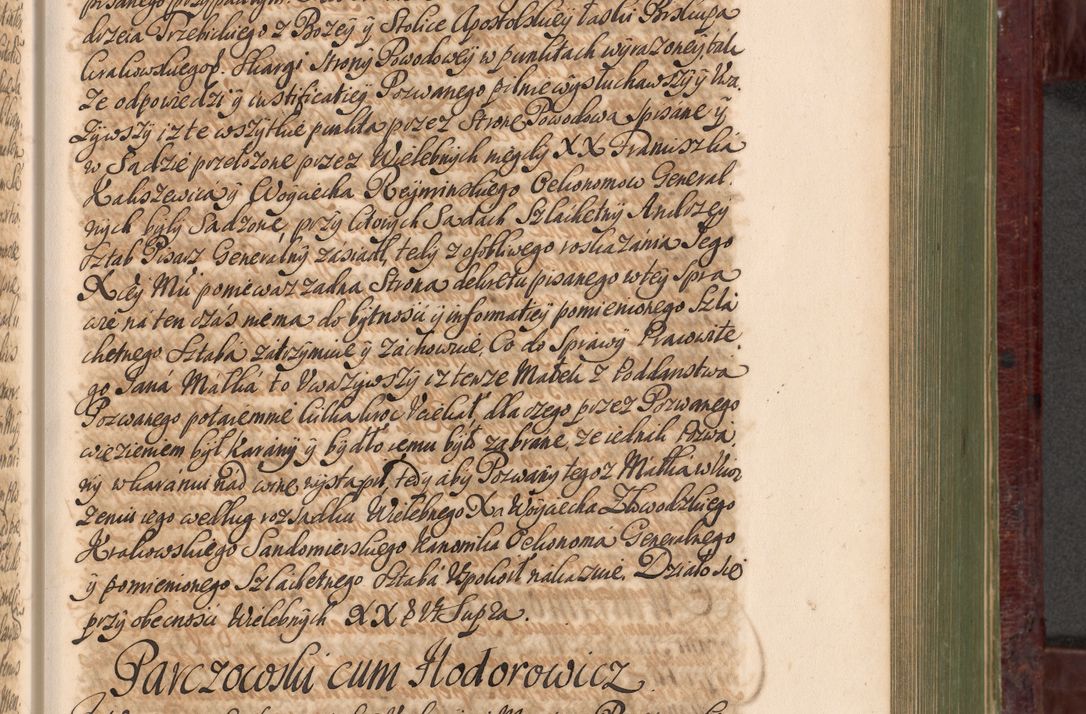 drzeia Trzebickiego z Bozey ÿ Stolice Apostolskiey łaski Biskupa
Krakowskiego. Skargi Strony Powodowey w punktach wyrazoney, tak
ze odpowiedzi ÿ iustificatiey Pozwanego pilnie wysłuchawszy ÿ Uwa
zÿwszÿ iz te wszytkie punkta przez Strone Powodowa spisane ÿ
w Sadzie przełozone przez Wielebnych niegdy XX Franciszka
Kaliszewica ÿ Woyciecha Reÿminskiego Oekonomow General
nÿch bÿły Sadzone, przÿ ktorÿch Sadach Szlachetnÿ Andrzeÿ
Sztab Pisarz Generalnÿ zásiadł, tedÿ z osobliwego roskazánia Jego
Xcieÿ Mći poniewaz zadna Strona dekretu pisanego w teÿ spra
wie na ten czás niema do bÿtnosci ÿ informatieÿ pomienionego Szla
chetnego Sztabá zatrzÿmuie ÿ záchowuie, Co do Sprawÿ Pracowite
go Janá Matka to Uwazÿwszÿ iz tenze Matek z Poddanstwa
Pozwanego potaiemnie kilka kroc Uciekał, dla czego przez Pozwanego
wiezieniem bÿł karany ÿ bÿdło iemu bÿło zabrane, ze iednak Pozwa
nÿ w karaniu nad wine wystąpił, Tedÿ abÿ Pozwanÿ tegoz Matka w
zeniu iego według rozsadku Wielebnego Xa Woÿciecha Złowodzkiego
Krakowskiego Sandomierskiego Kanonika Oekonomá Generalnego
ÿ pomienionego Szlachetnego Sztabá Uspokoił nakazuie. Działo sie
przÿ obecnosci Wielebnÿch XX Ut Supra.
Parczowski cum Hodorowicz